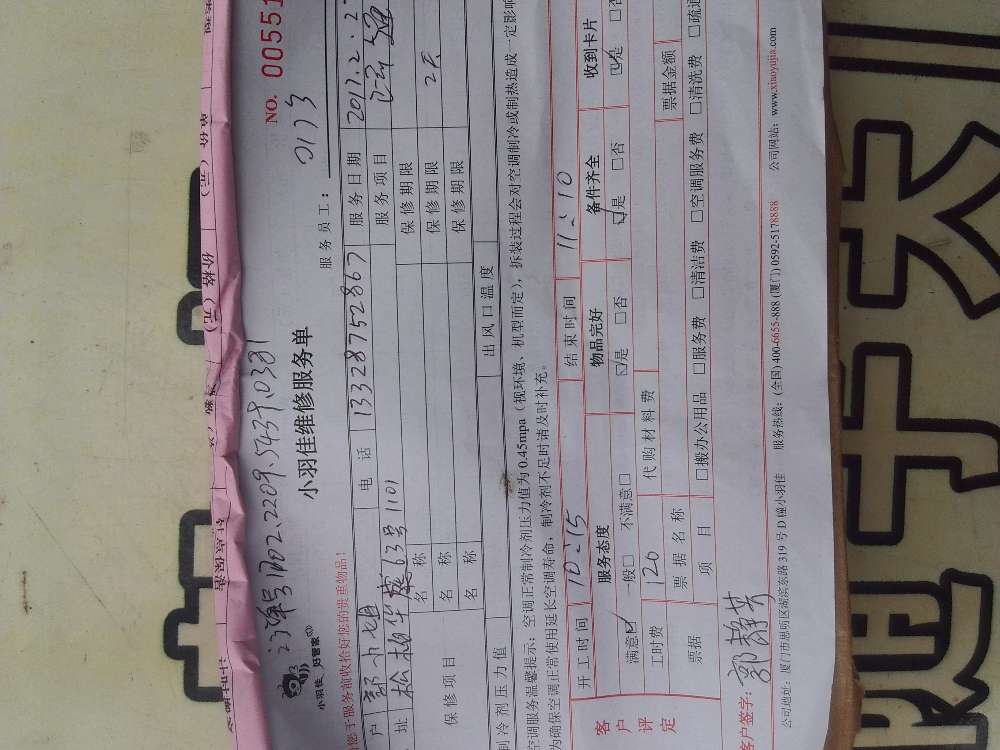 NO. 00551
订单号1702.2209.5439.0381
小羽佳 好管家
小羽佳维修服务单
服务员工： 0173
您于服务前收拾好您的贵重物品！
户 郭小姐 电 话 13328752867 服务日期 2017.2.2
址 松柏华庭63号1101 服务项目
保修项目 名 称 保修期限
名 称 保修期限 2天
名 称 保修期限
制冷剂压力值 出风口温度
空调服务温馨提示：空调正常制冷剂压力值为0.45mpa（视环境、机型而定），拆装过程会对空调制冷或制热造成一定影响
为确保空调正常使用延长空调寿命，制冷剂不足时请及时补充。
开工时间 10:15 结束时间 11:10
客户评定 服务态度 物品完好 备件齐全 收到卡片
满意☑ 一般□ 不满意□ ☑是 □否 ☑是 □否 ☑是 □否
工时费 120 代购材料费
票据 票据名称 票据金额
项 目 □搬办公用品 □服务费 □清洁费 □空调服务费 □清洗费 □疏通
客户签字： 郭静芳
公司地址：厦门市思明区湖滨东路319号D幢小羽佳 服务热线：(全国) 400-6655-888 (厦门) 0592-5178888 公司网站：www.xiaoyujia.com